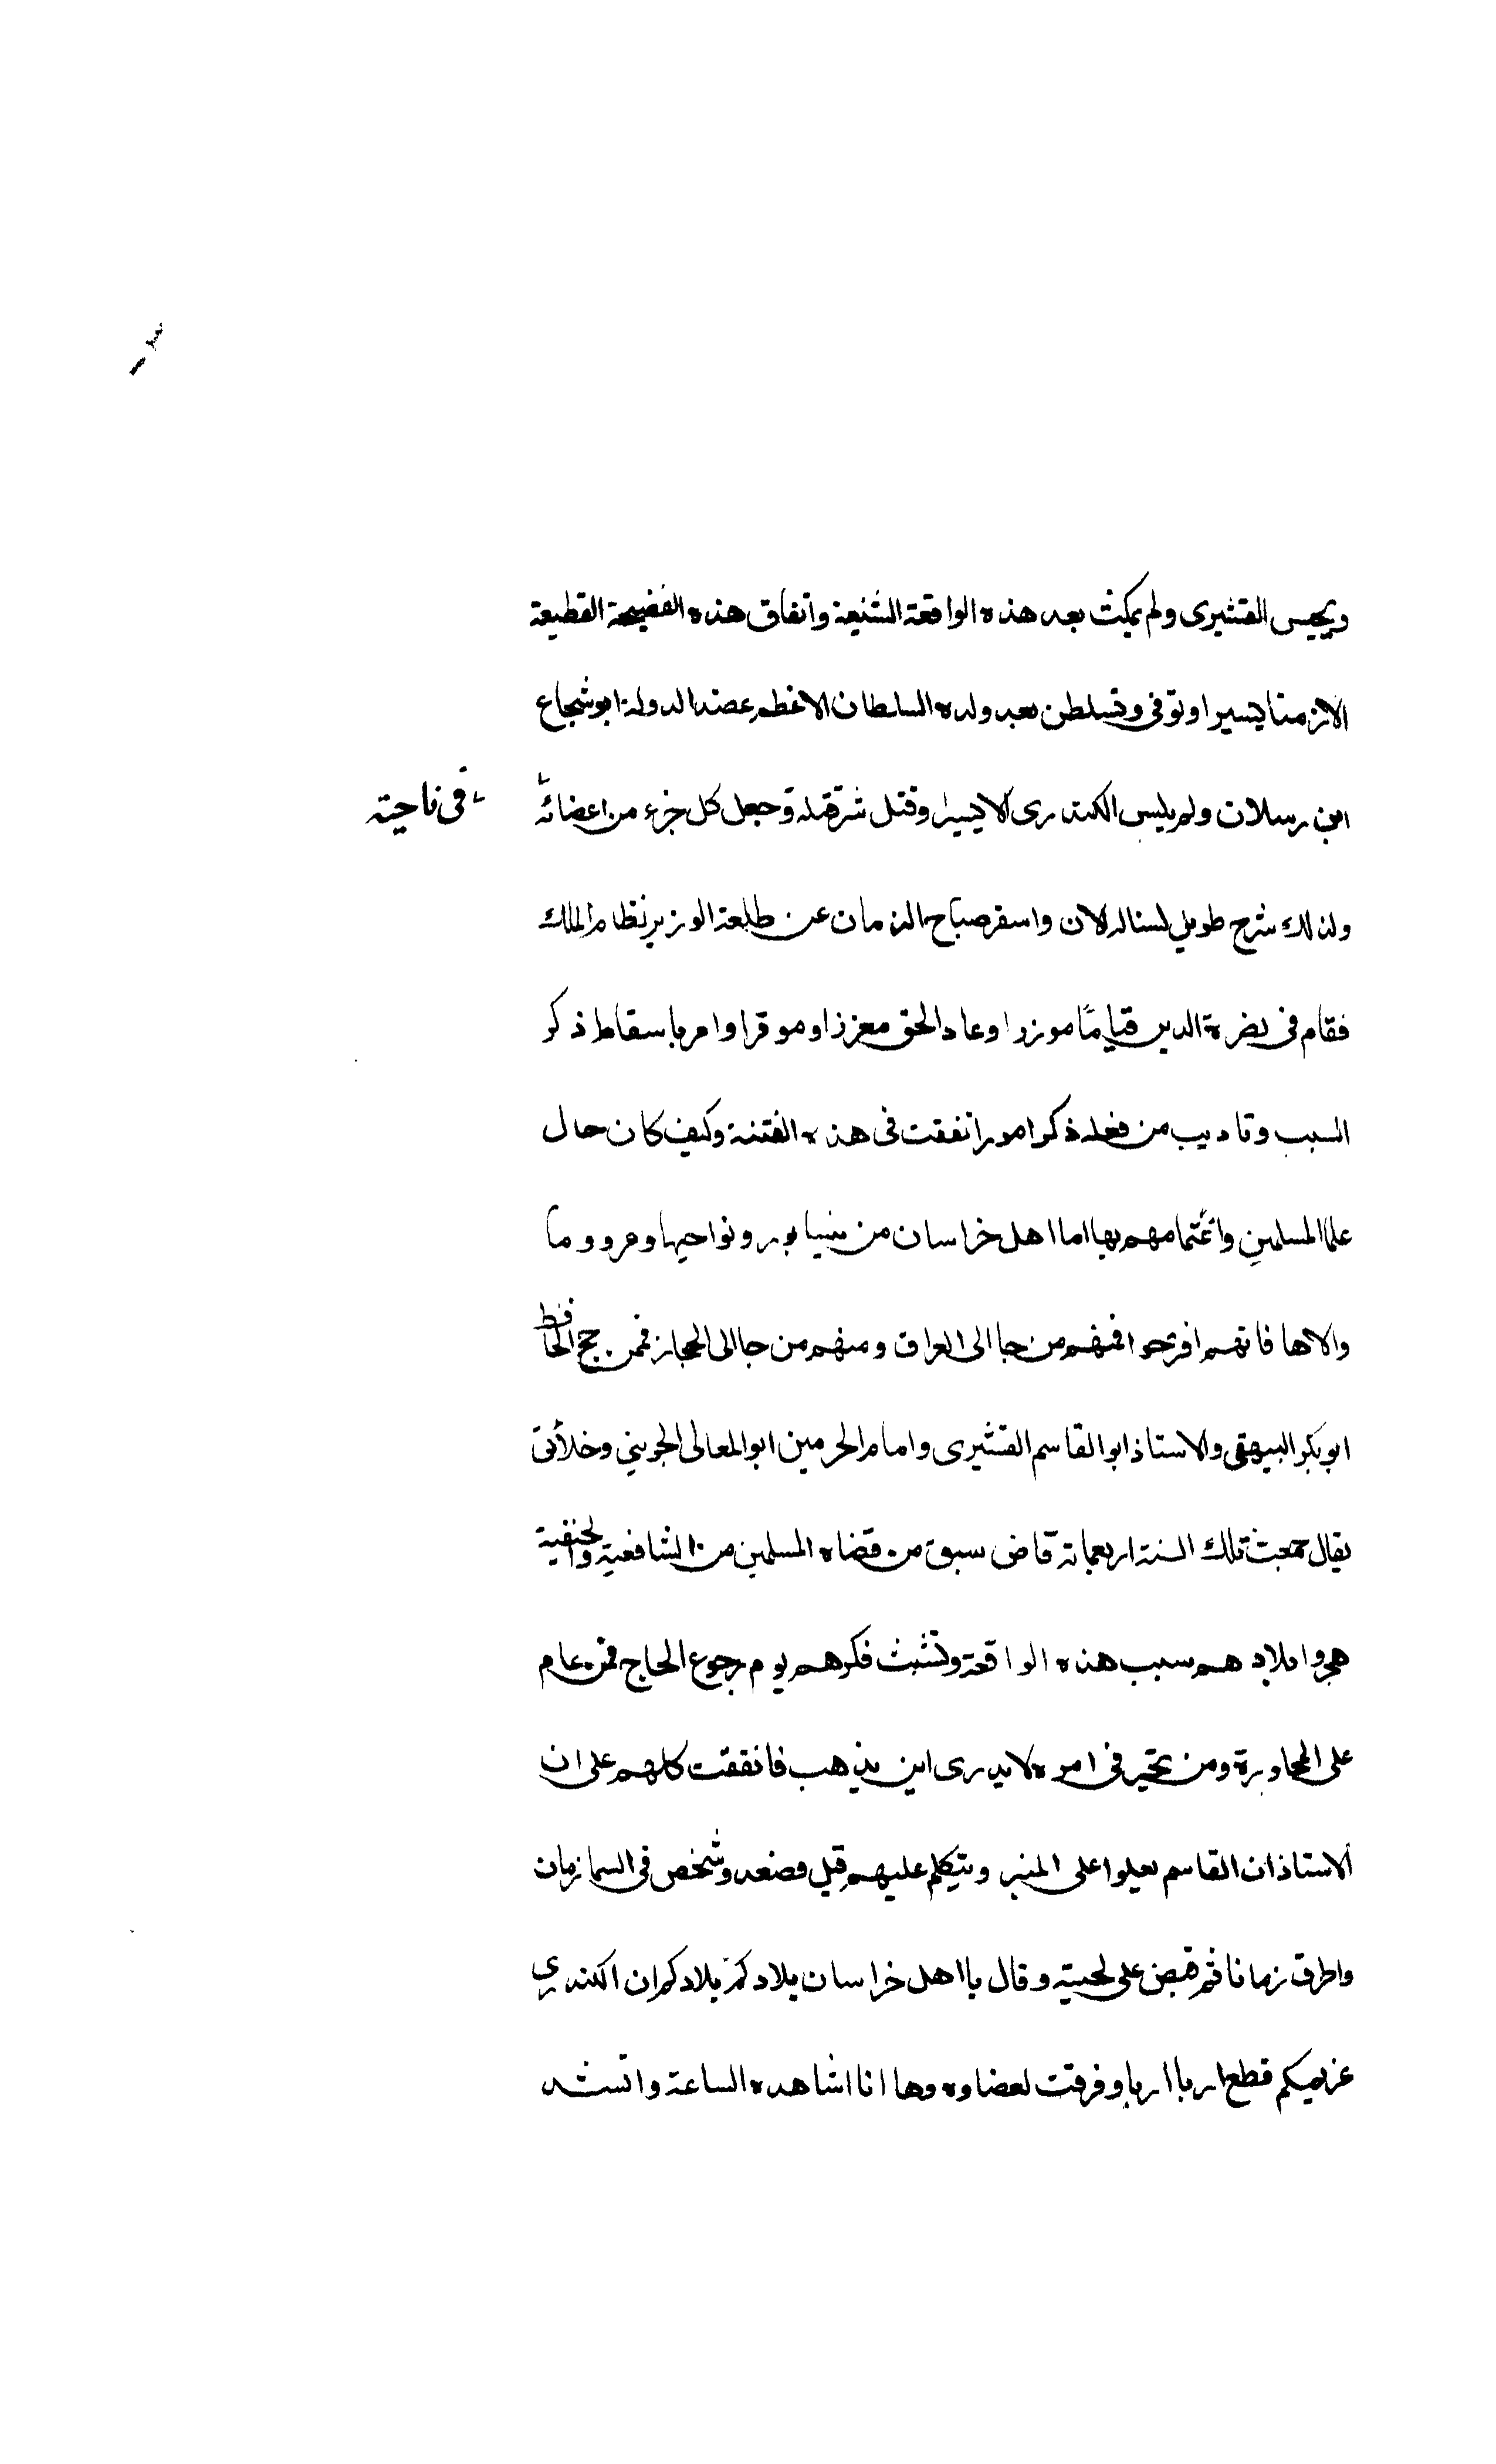 ويحبس القشيرى ولم يمكث بعد هذه الواقعة الشنيعة واتفاق هذه الفضيحة القطيعة
الا زمنا يسيرا وتوفى وتسلطن بعد ولده السلطان الاعظم عضد الدولة ابو شجاع
ابن رسلان ولم يلبس الكندرى الا يسيرا وقتل شر قتلة وجعل كل جزء من اعضائه
فى ناحية
ولذلك شرح طويل لسنا له الان واسفر صباح الزمان عن طلعة الوزير نظام الملك
فقام فى نصرة الدين قياما موزرا وعاد الحق معززا وموقرا وامر باسقاط ذكر
السب وتاديب من فعله ذكر امور اتفقت فى هذه الفتنة وكيف كان حال
علما المسلمين واغتمامهم بها اما اهل خراسان من نيسابور ونواحيها ومرو وما
والاها فانهم افر فمنهم من جا الى العراق ومنهم من جا الى الحجاز فمن حج الحافظ
ابو بكر البيهقى والاستاذ ابو القاسم القشيرى وامام الحرمين ابو المعالى الجوينى وخلائق
يقال جمعت تلك السنة اربعماية قاض من قضاه المسلمين من الشافعية والحنفية
هجروا بلادهم بسبب هذه الواقعة وتشتت فكرهم يوم رجوع الحاج فمن عام
على المجاورة ومن تحير فى امره لا يدرى اين يذهب فاتفقت كلهم على ان
الاستاذ ان القاسم يعلوا على المنبر ويتكلم عليهم قيل فصعد وشخص فى السما زمان
واطرق زمانا ثم قبض على لحيته وقال يا اهل خراسان بلادكم بلادكم ان الكندرى
غريمكم قطع اربا اربا وفرقت اعضاوه وها انا اشاهده الساعة وانشد